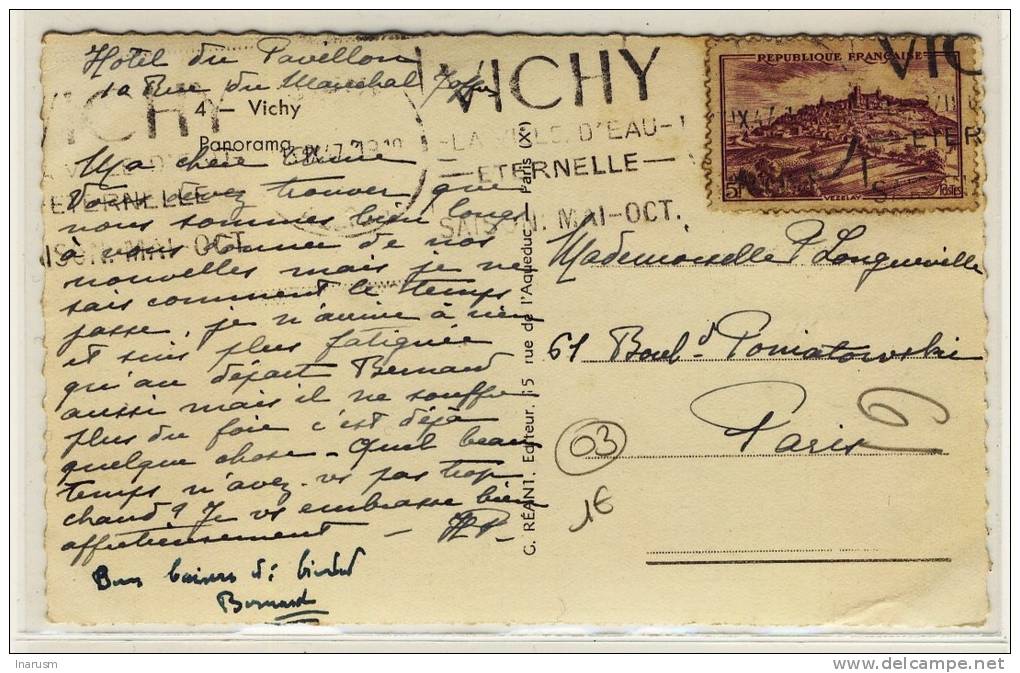 Hôtel du Pavillon
12 Rue du Maréchal Joffre
4 – Vichy
Panorama
Ma chère
Vous devez trouver que
nous sommes bien longs
à vous donner de nos
nouvelles mais je ne
sais comment le temps
passe, je n'arrive à rien
et suis plus fatiguée
qu'au départ Bernard
aussi mais il ne souffre
plus du foie c'est déjà
quelque chose. Quel beau
temps n'avez-vs pas trop
chaud? Je vs embrasse bien
affectueusement
Bons baisers de
Bernard
VICHY
LA VILLE D'EAU
ETERNELLE
SAISON. MAI-OCT.
G. RÉANT. Editeur. 15 rue de l'Aqueduc – Paris (Xᵉ)
REPUBLIQUE FRANÇAISE
5F
VEZELAY
POSTES
VICHY
ETERNELLE
SAISON. MAI-OCT.
VIC
ETER
Mademoiselle P Longueville
61 Boul–d Poniatowski
Paris
03
1€
Inarusm
delcampe.net